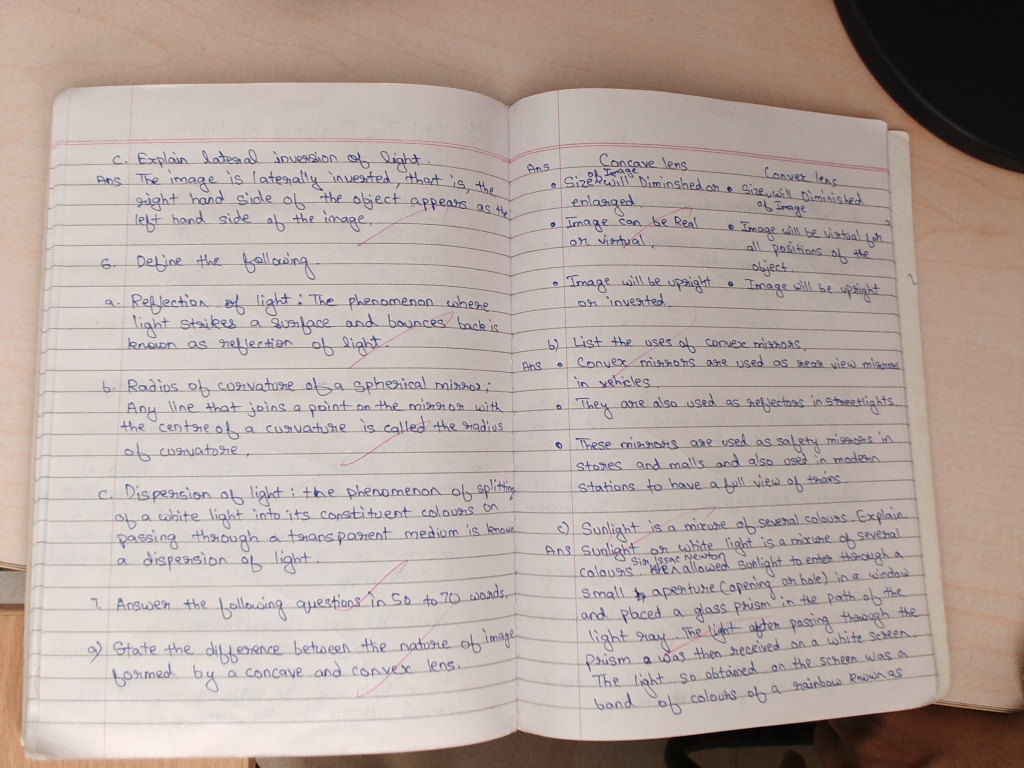 C. Explain lateral inversion of light.
Ans The image is laterally inverted, that is, the
right hand side of the object appears as the
left hand side of the image.
6. Define the following.
a. Reflection of light : The phenomenon where
light strikes a surface and bounces back is
known as reflection of light.
b. Radios of curvature of a spherical mirror :
Any line that joins a point on the mirror with
the centre of a curvature is called the radius
of curvature.
c. Dispersion of light : the phenomenon of spliting
of a white light into its constituent colours on
passing through a transparent medium is known
a dispersion of light.
7. Answer the following questions in 50 to 70 words.
a) State the difference between the nature of image
formed by a concave and convex lens.
Ans Concave lens Convex lens
• Size of Image will Diminshed or • Size of Image will Diminished
enlarged.
• Image can be Real • Image will be virtual for
or virtual. all positions of the
object.
• Image will be upright • Image will be upright
or inverted.
b) List the uses of convex mirrors.
Ans • Convex mirrors are used as rear view mirrors
in vehicles.
• They are also used as reflectors in streetlights
• These mirrors are used as safety mirrors in
stores and malls and also used in modern
stations to have a full view of trians.
c) Sunlight is a mixure of several colours. Explain
Ans Sunlight or white light is a mixure of several
colours. Sir Issac Newton allowed sunlight to enter through a
small aperture (opening or hole) in a window
and placed a glass prism in the path of the
light ray. The light after passing through the
prism was then received on a white screen.
The light so obtained on the screen was a
band of colours of a rainbow known as
2